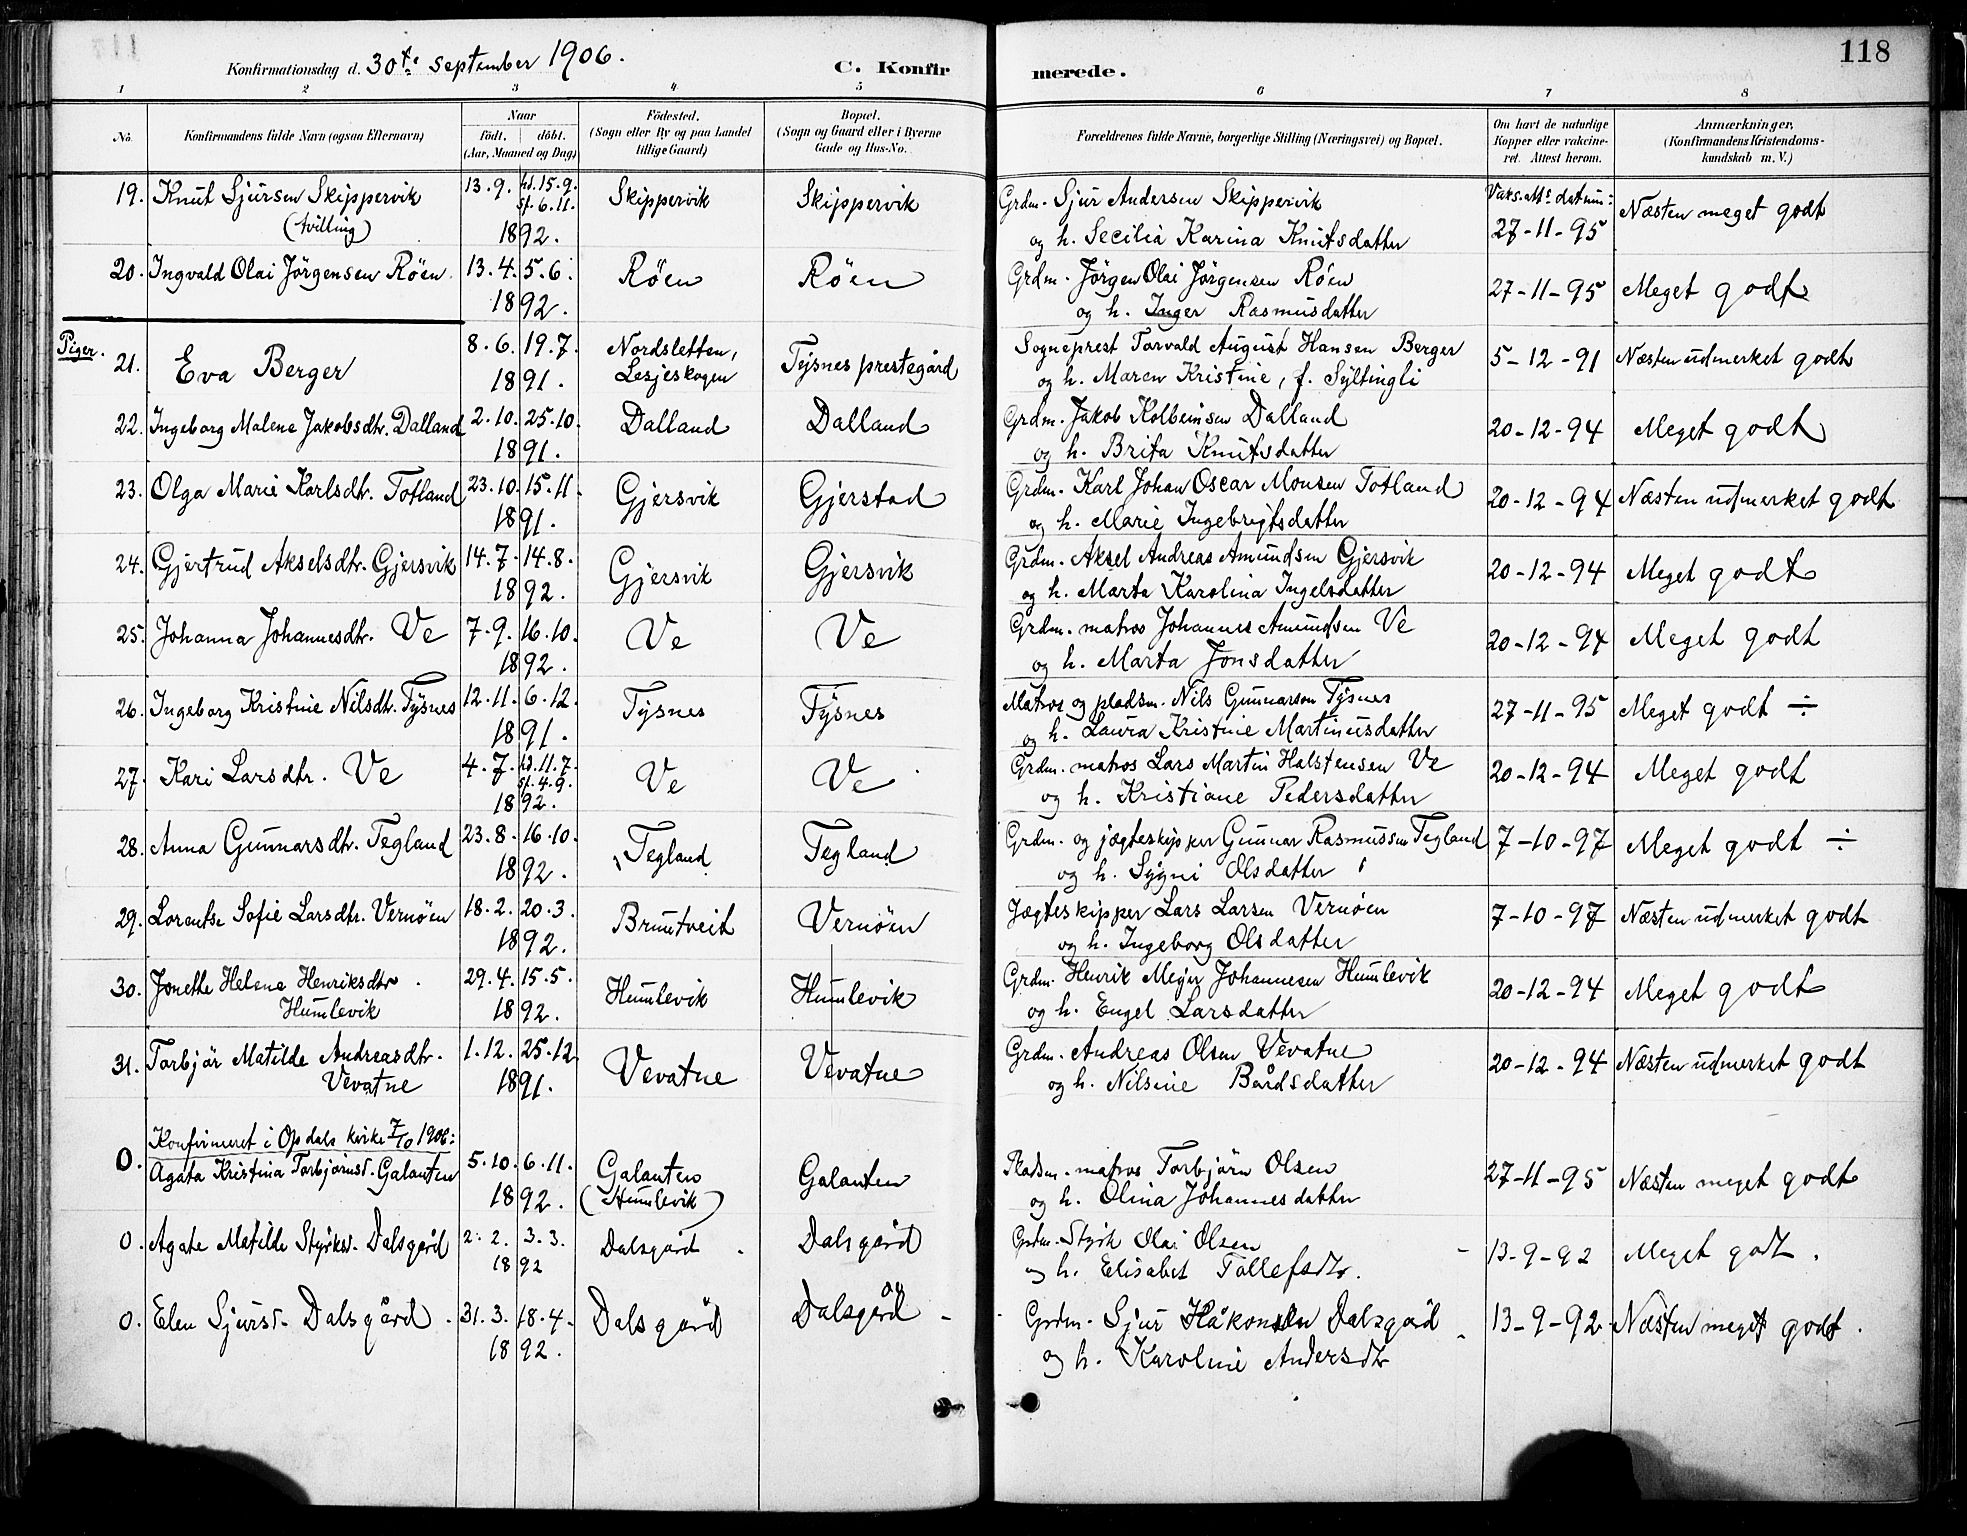 Konfirmationsdag d. 30te september 1906. C. Konfirmerede. 118
1 2 3 4 5 6 7 8
No. Konfirmandens fulde Navn (ogsaa Efternavn) Naar födt. döbt. (Aar, Maaned og Dag) Födested. (Sogn eller By og paa Landet tillige Gaard) Bopæl. (Sogn og Gaard eller i Byerne Gade og Hus-No. Forældrenes fulde Navne, borgerlige Stilling (Næringsvei) og Bopæl. Om havt de naturlige Kopper eller vakcineret. Attest herom. Anmærkninger. (Konfirmandens Kristendomskundskab m. V.)
19. Knut Sjursen Skjippervik 13.9. hd. 15.9. Skjippervik Skjippervik Grdm. Sjur Andersen Skjippervik Vaks.att. datum: Næsten meget godt
(tvilling) st. 6.11. 1892. og h. Secilia Karina Knutsdatter 27-11-95
20. Ingvald Olai Jörgensen Röen 13.4. 5.6. Röen Röen Grdm. Jörgen Olai Jörgensen Röen 27-11-95 Meget godt
1892. og h. Inger Rasmusdatter
Piger.
21. Eva Berger 8.6. 19.7. Nordsletten, Tysnes prestegård Sogneprest Torvald August Hansen Berger 5-12-91 Næsten udmerket godt
1891. Lesjeskogen og h. Maren Kristine, f. Syltingli
22. Ingeborg Malene Jakobsdtr. Dalland 2.10. 25.10. Dalland Dalland Grdm. Jakob Kolbeinsen Dalland 20-12-94 Meget godt
1891. og h. Brita Knutsdatter
23. Olga Marie Karlsdtr. Totland 23.10. 15.11. Gjersvik Gjerstad Grdm. Karl Johan Oscar Monsen Totland 20-12-94 Næsten udmerket godt
1891. og h. Marie Ingebrigtsdatter
24. Gjertrud Akselsdtr. Gjersvik 14.7. 14.8. Gjersvik Gjersvik Grdm. Aksel Andreas Amundsen Gjersvik 20-12-94 Meget godt
1892. og h. Marta Karolina Ingelsdatter
25. Johanna Johannesdtr. Ve 7.9. 16.10. Ve Ve Grdm. matros Johannes Amundsen Ve 20-12-94 Meget godt
1892. og h. Marta Jonsdatter
26. Ingeborg Kristine Nilsdtr. Tysnes 12.11. 6.12. Tysnes Tysnes Matros og pladsm. Nils Gunnarson Tysnes 27-11-95 Meget godt ÷
1891. og h. Laura Kristine Martinusdatter
27. Kari Larsdtr. Ve 4.7. hd. 11.7. Ve Ve Grdm. matros Lars Martin Halstensen Ve 20-12-94 Meget godt
st. 4.9. 1892. og h. Kristiane Pedersdatter
28. Anna Gunnarsdtr. Tegland 23.8. 16.10. Tegland Tegland Grdm. og jægteskipper Gunnar Rasmussen Tegland 7-10-97 Meget godt ÷
1892. og h. Sygni Olsdatter
29. Lorentse Sofie Larsdtr. Vernöen 18.2. 20.3. Bruntveit Vernöen Jægteskipper Lars Larsen Vernöen 7-10-97 Næsten udmerket godt
1892. og h. Ingeborg Olsdatter
30. Jonette Helene Henriksdtr. 29.4. 15.5. Humlevik Humlevik Grdm. Henrik Meyer Johannesen Humlevik 20-12-94 Meget godt
Humlevik 1892. og h. Engel Larsdatter
31. Torbjör Matilde Andreasdtr. 1.12. 25.12 Vevatne Vevatne Grdm. Andreas Olsen Vevatne 20-12-94 Næsten udmerket godt
Vevatne 1891. og h. Nilsine Bårdsdatter
Konfirmeret i Opdals kirke 7/10 1906:
0. Agata Kristina Torbjörnsd. Galanten 5.10. 6.11. Galanten Galanten Pladsm. matros Torbjörn Olsen 27-11-95 Næsten meget godt
1892. (Humlevik) og h. Olina Johannesdatter
0. Agate Matilde Styrksd. Dalsgård 2.2. 3.3. Dalsgård Dalsgård Grdm. Styrk Olai Olsen 13-9-92 Meget godt.
1892 og h. Elisabet Tollefsdtr.
0. Elen Sjursd. Dalsgård 31.3. 18.4. Dalsgård Dalsgård Grdm. Sjur Håkonsen Dalsgård 13-9-92 Næsten meget godt.
1892. og h. Karoline Andersdtr